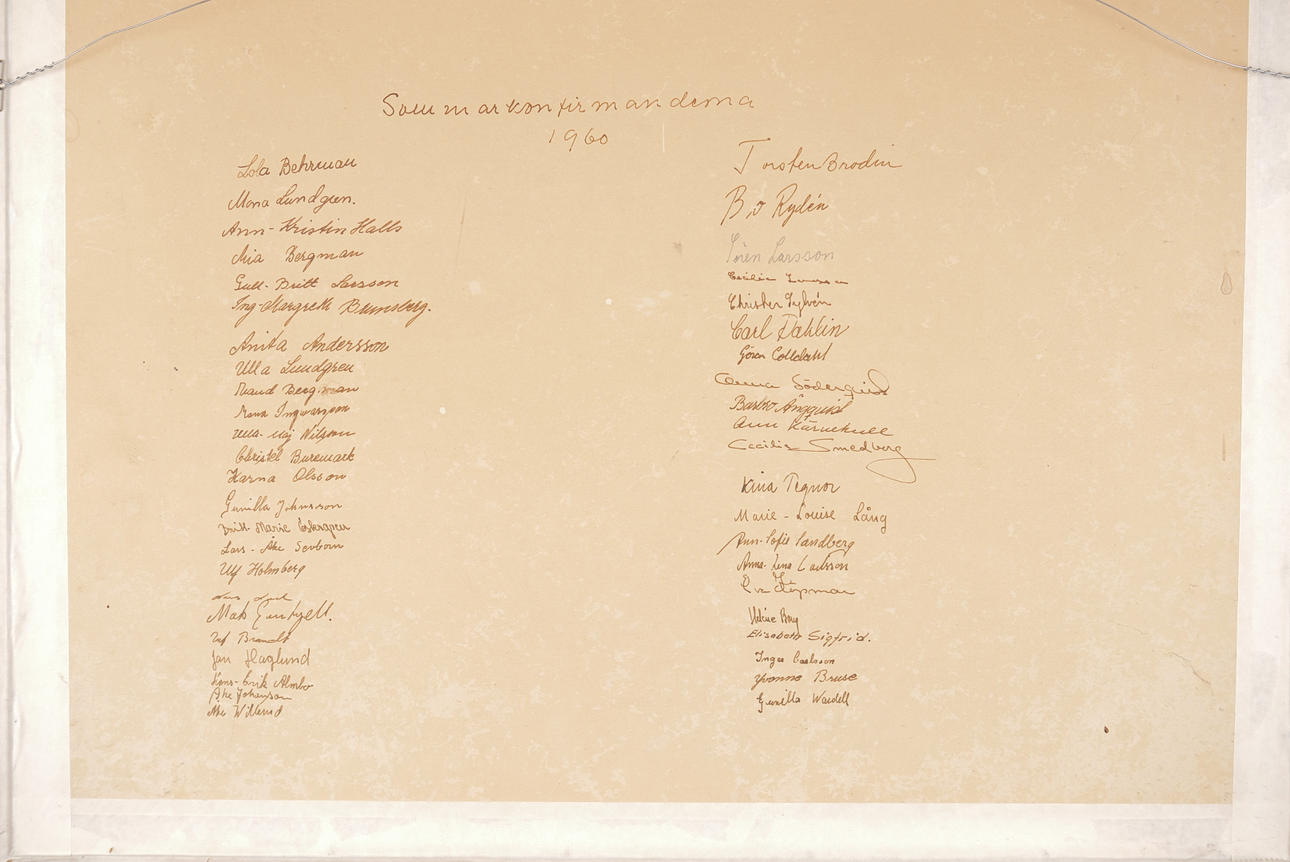 Sommarkonfirmanderna
1960
Lola Behrman
Mona Lundgren.
Ann-Kristin Halls
Mia Bergman
Gull-Britt Larsson
Ing-Margreth Brunsberg.
Anita Andersson
Ulla Lundgren
Maud Bergman
Mona Ingvarsson
Ulla-Maj Nilsson
Christel Buremark
Karna Olsson
Gunilla Johnsson
Britt-Marie
Lars-Åke
Ulf Holmberg
Mats Gentzell.
Ulf Brandt
Jan Haglund
Hans-Erik Almbo
Åke Johanson
Åke Willund
Torsten Brodin
Bo Rydén
Sören Larsson
Cecilia
Christer Sylvén
Carl Dahlin
Göran Colldahl
Anna Söderquist
Barbro Ängquist
Ann Kärnekull
Cecilia Smedberg
Kina Tegnor
Marie-Louise Lång
Ann-Sofie Sandberg
Anna-Lena Carlsson
Eva
Elisabeth Sigfrid.
Inger Carlsson
Yvonne Bruse
Gunilla Wardell